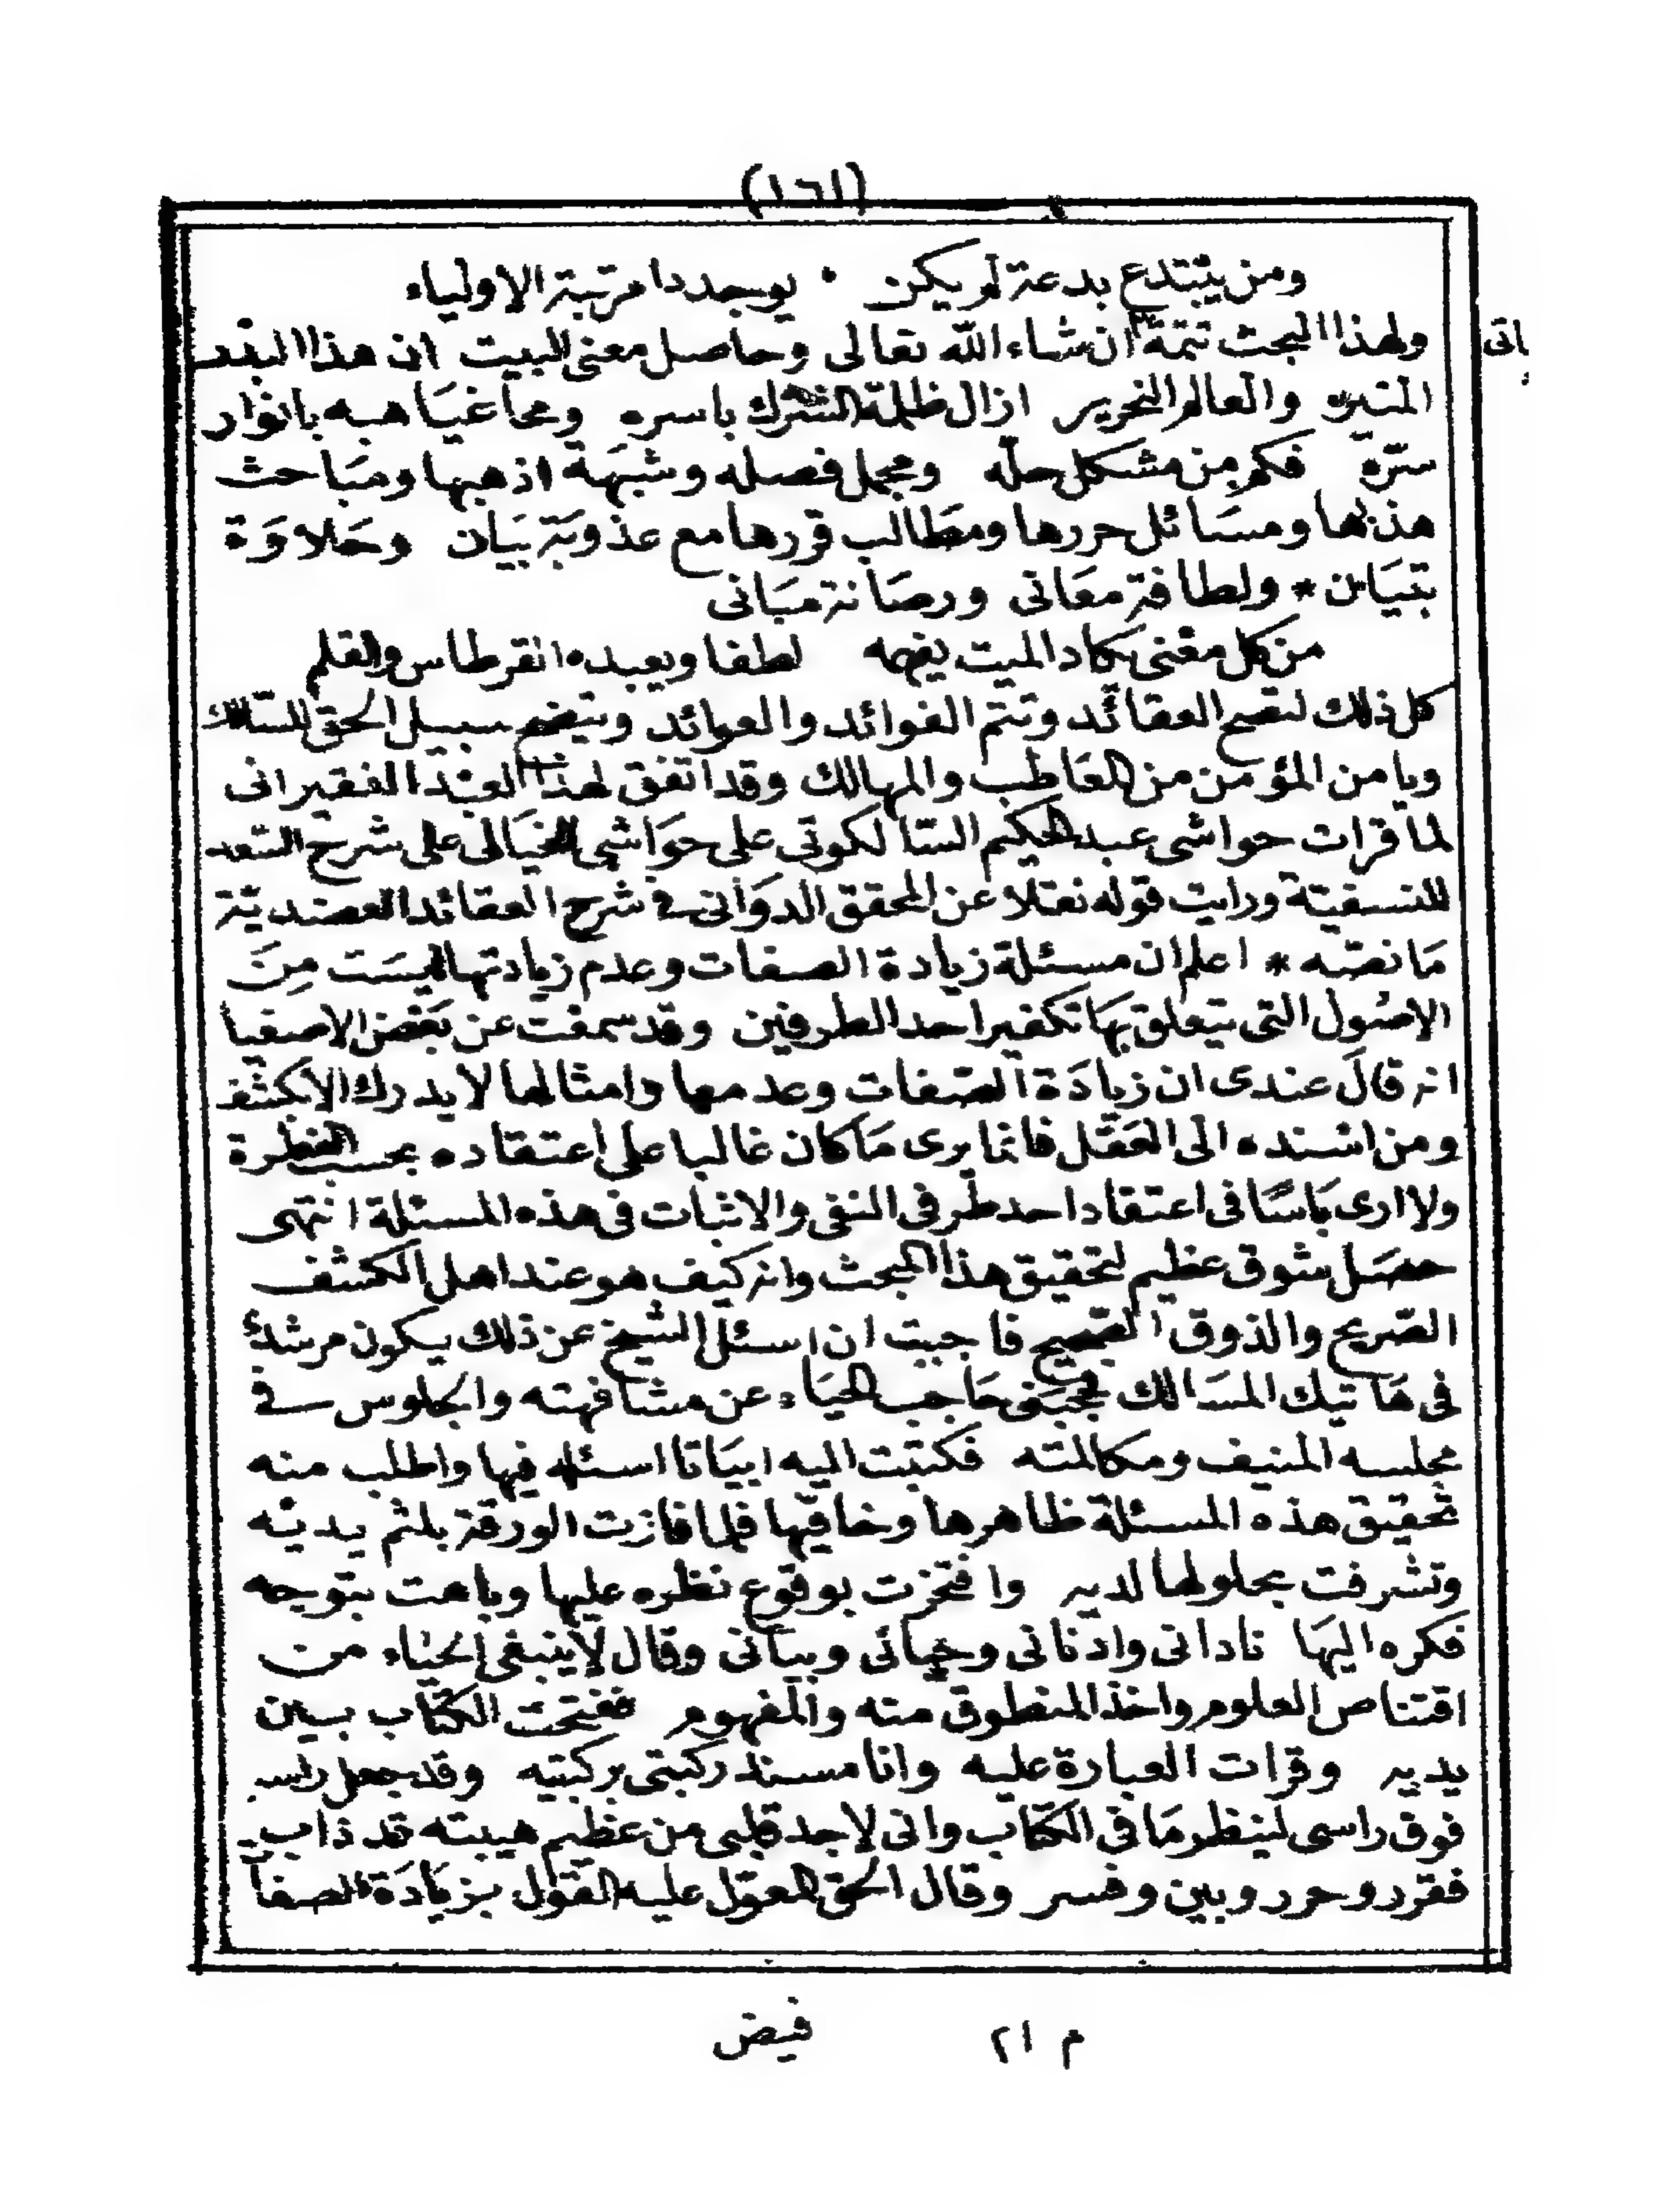 (١٦١)
ومن يبتدع بدعة لم يكن ٠ يوجد دا مرتبة الاولياء
ولهذا البحث تتمة ان شاء الله تعالى وحاصل معنى البيت ان هذا البدر
المنير والعالم النحرير ازال ظلمة الشرك باسره ومحا غياهبه بانوار
سره فكم من مشكل حله ومجمل فصله وشبهة اذهبها ومباحث
هذبها ومسائل حررها ومطالب قررها مع عذوبة بيان وحلاوة
تبيان * ولطافة معانى ورصانة مبانى
من كل معنى يكاد الميت يفهمه لطفا ويعبده القرطاس والقلم
كل ذلك لتصح العقائد وتتم الفوائد والعوائد ويتضح سبيل الحق للسالك
ويامن المؤمن من المعاطب والمهالك وقد اتفق لهذا العبد الفقير انى
لما قرات حواشى عبد الحكيم السيالكوتى على حواشى الخيالى على شرح السعد
للنسفية ورايت قوله نقلا عن المحقق الدوانى فى شرح العقائد العضدية
ما نصه * اعلم ان مسئلة زيادة الصفات وعدم زيادتها ليست من
الاصول التى يتعلق بها تكفير احد الطرفين وقد سمعت عن بعض الاصفيا
انه قال عندى ان زيادة الصفات وعدمها وامثالها لا يدرك الا بكشف
ومن اسنده الى العقل فانما يرى ما كان غالبا على اعتقاده بحسب النظرة
ولا ارى باسا فى اعتقاد احد طرفى النفى والاثبات فى هذه المسئلة انتهى
حصل شوق عظيم لتحقيق هذا المبحث وانه كيف هو عند اهل الكشف
الصريح والذوق الصحيح فاحببت ان اسئل الشيخ عن ذلك ليكون مرشدئ
فى هاتيك المسالك فحجبنى حاجب الحياء عن مشافهته والجلوس فى
مجلسه المنيف ومكالمته فكتبت اليه ابياتا اسئله فيها واطلب منه
تحقيق هذه المسئلة ظاهرها وخافيها فلما فازت الورقة بلثم يديه
وتشرفت بحلولها لديه وافتخرت بوقوع نظره عليها وباهت بتوجه
فكره اليها نادانى وادنانى وحيانى وبيانى وقال لا ينبغى الحياء من
اقتناص العلوم واخذ المنطوق منه والمفهوم ففتحت الكتاب بين
يديه وقرات العبارة عليه وانا مسند ركبتى بركبتيه وقد جعل راسه
فوق راسى لينظر ما فى الكتاب وانى لاجد قلبى من عظيم هيبته قد ذاب
فقرر وحرر وبين وفسر وقال الحق المعول عليه القول بزيادة الصفا
م ٢١ فيض